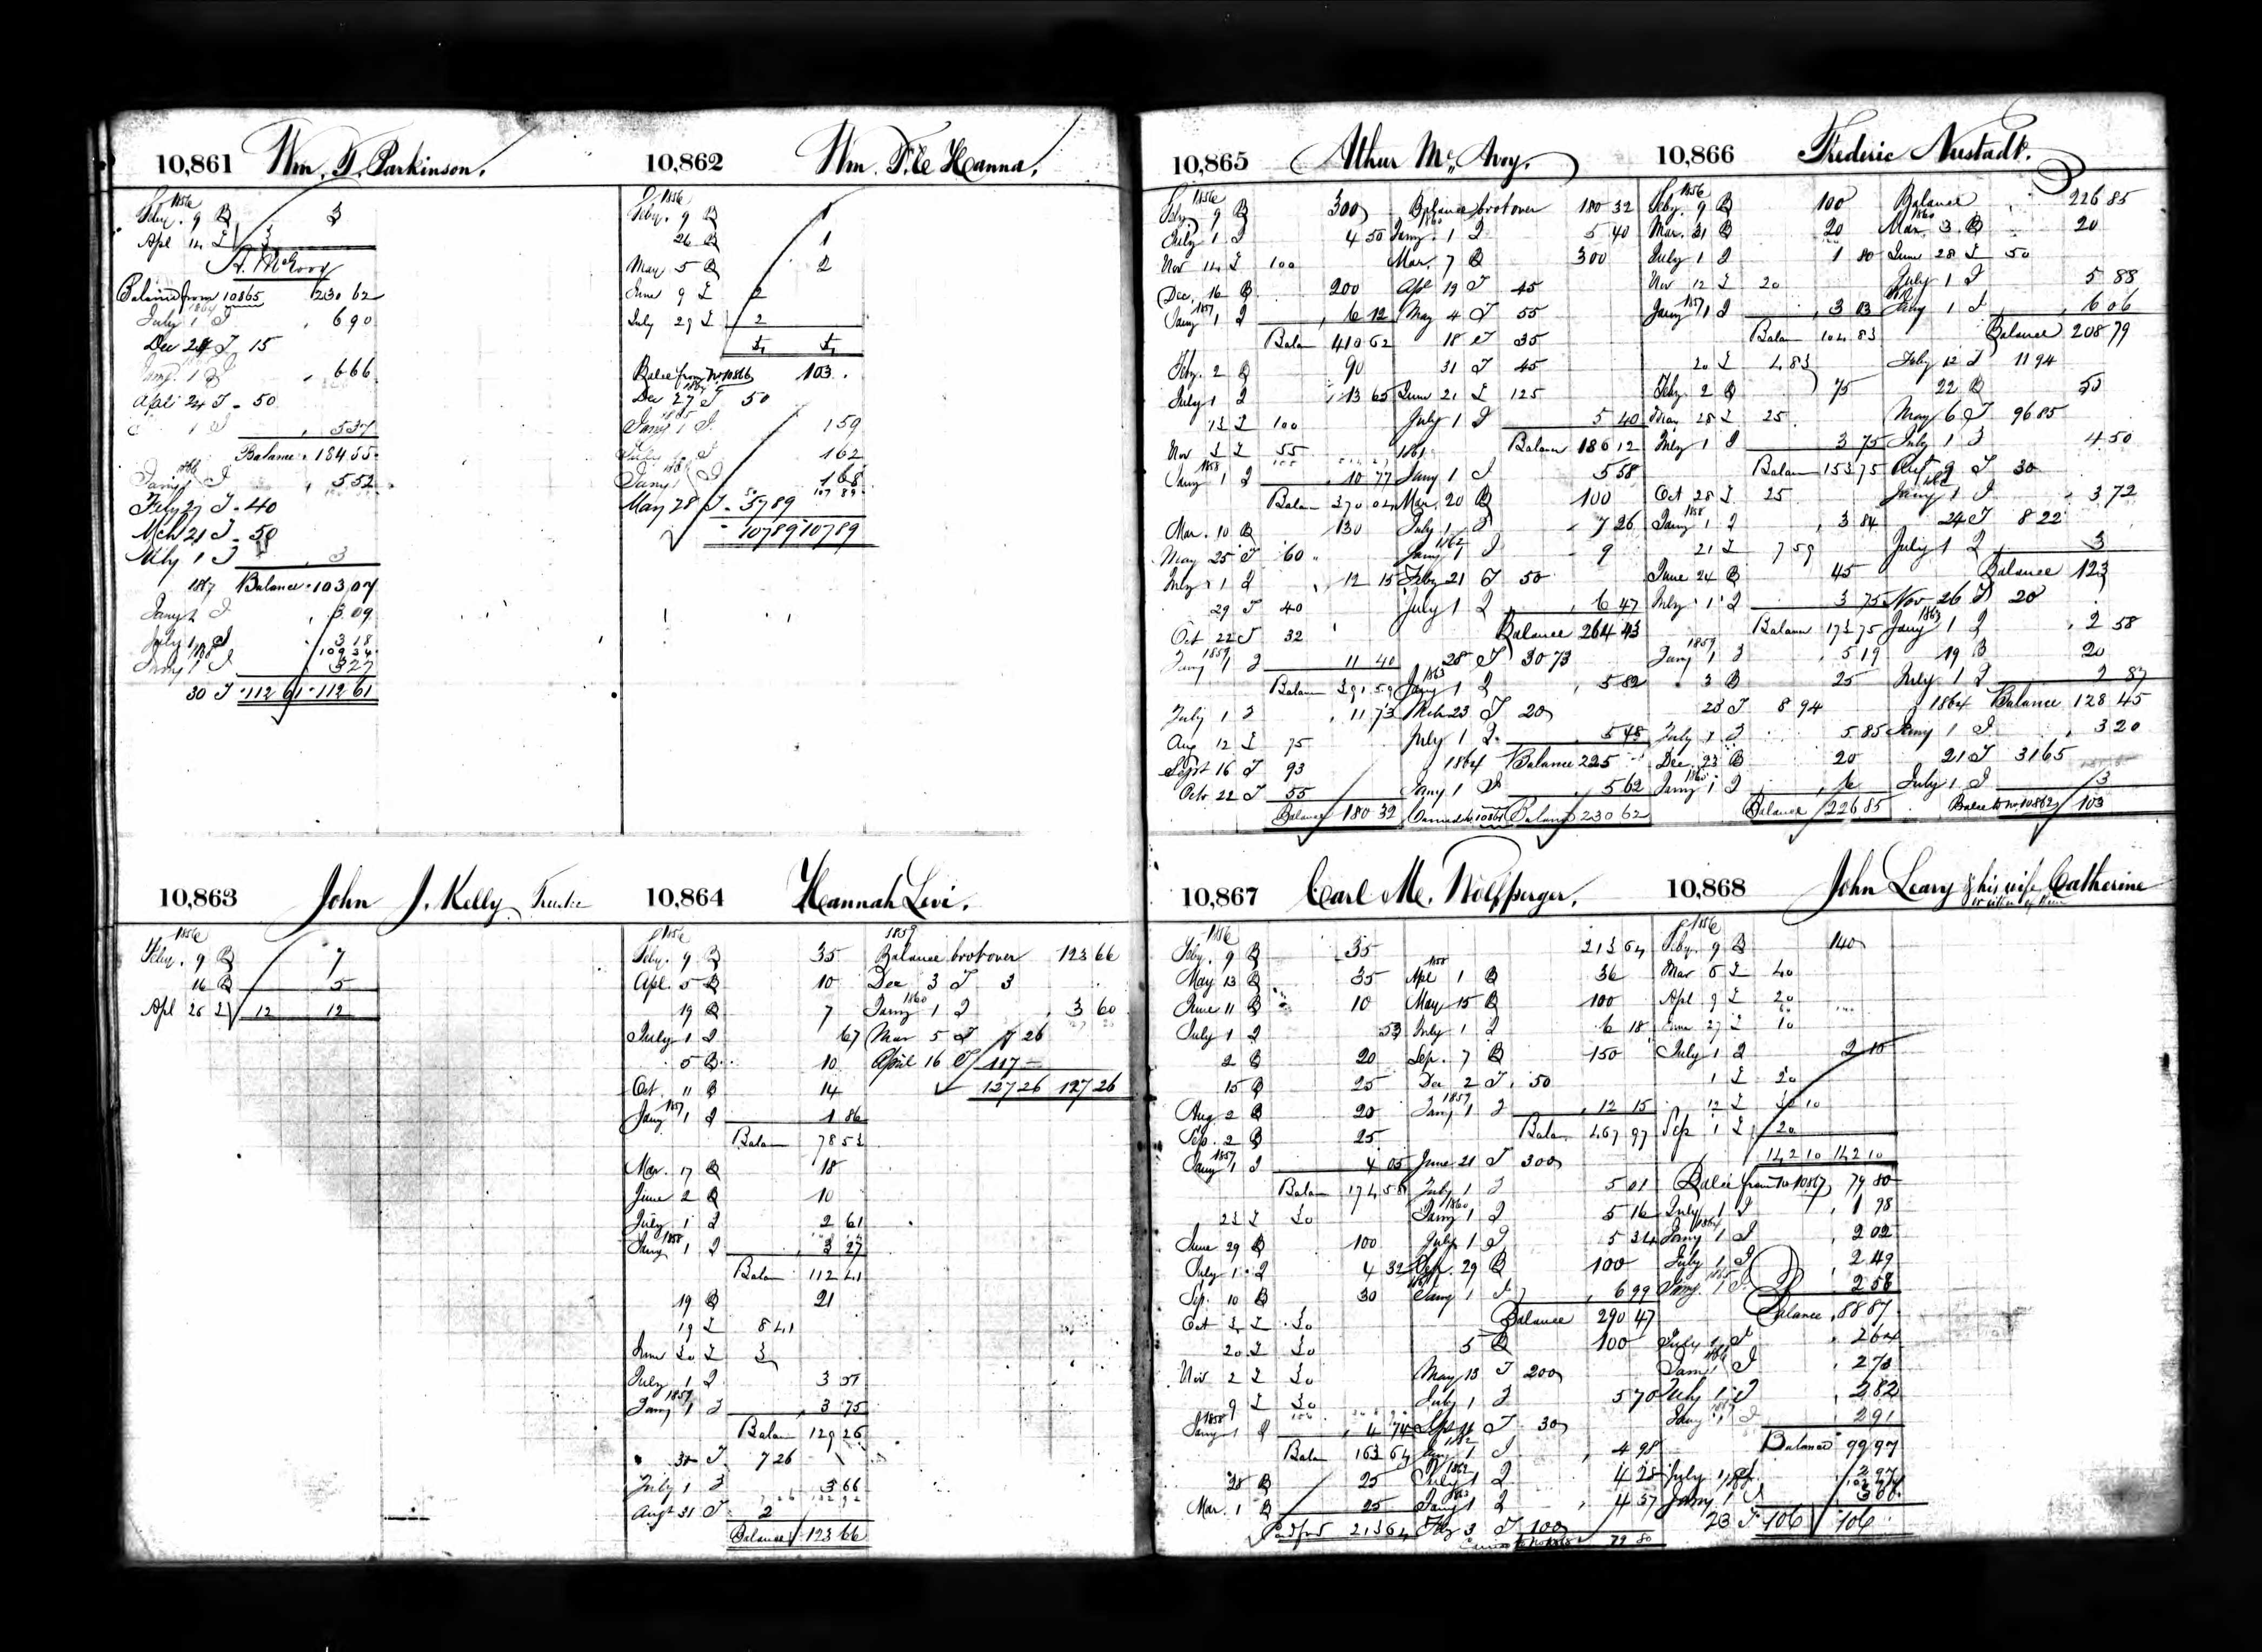 10,861 Wm. T. Parkinson.
1856
Feby. 9 B 3
Apl 14 I 3
A. McAvoy
Balance from 10865 230 62
1864
July 1 I 6 90
Dec 24 T 15
Jany. 1 I 6 66
April 24 T 50
1 I 5 37
Balance 184 55
1866
Jany 1 I 5 52
Feby 27 T 40
Mch 21 T 50
July 1 I 3
1867 Balance 103 07
Jany 1 I 3 09
July 1 I 3 18
109 34
1868
Jany 1 I 3 27
30 T 112 61 112 61
10,862 Wm. F. C. Hanna.
1856
Feby. 9 B 1
26 B 1
May 5 B 2
June 9 I 2
July 29 I 2
4 4
Balce from No 10866 103
1864
Dec 27 T 50
1865
Jany 1 I 1 59
July 1 I 1 62
1866
Jany 1 I 1 68
50 107 89
May 28 T 57 89
107 89 107 89
10,863 John J. Kelly Trustee
1856
Feby. 9 B 7
16 B 5
Apl 26 I 12 12
10,864 Hannah Levi.
1856
Feby. 9 B 35
Apl. 5 B 10
19 B 7
July 1 I 67
5 B 10
Oct 11 B 14
1857
Jany 1 I 1 86
Balan 78 53
Mar. 17 B 18
June 2 B 10
July 1 I 2 61
1858
Jany 1 I 3 27
Balan 112 41
19 B 21
19 I 8 41
June 30 I 3
July 1 I 3 51
1859
Jany 1 I 3 75
Balan 129 26
30 T 7 26
July 1 I 3 66
Augt 31 T 2
Balance 123 66
1859
Balance brot over 123 66
Dec 3 T 3
1860
Jany 1 I 3 60
Mar 5 T 7 26
April 16 T 117
127 26 127 26
10,865 Athur Mc. Avoy.
1856
Feby 9 B 300
July 1 I 4 50
Nov 14 I 100
Dec. 16 B 200
1857
Jany 1 I 6 12
Balan 410 62
Feby. 2 B 90
July 1 I 13 65
13 I 100
Nov 3 I 55
1858
Jany 1 I 10 77
Balan 370 04
Mar. 10 B 130
May 25 T 60
July 1 I 12 15
29 T 40
Oct 22 T 32
1859
Jany 1 I 11 40
Balan 391 59
July 1 I 11 73
Aug 12 I 75
Sept 16 T 93
Octr 22 T 55
Balance 180 32
Balance brot over 180 32
1860
Jany. 1 I 5 40
Mar. 7 B 300
Apl 19 T 45
May 4 T 55
18 T 35
31 T 45
June 21 I 125
July 1 I 5 40
Balan 186 12
1861
Jany 1 I 5 58
Mar. 20 B 100
July 1 I 7 26
1862
Jany 1 I 9
Feby 21 T 50
July 1 I 6 47
Balance 264 43
28 T 30 73
1863
Jany 1 I 5 82
Mch 23 T 20
July 1 I 5 48
1864 Balance 225
Jany 1 I 5 62
Carried to 10861 Balance 230 62
10,866 Frederic Nustadt.
1856
Feby. 9 B 100
Mar. 31 B 20
July 1 I 1 80
Nov 12 I 20
1857
Jany 1 I 3 03
Balan 104 83
20 I 4 83
Feby. 2 B 75
May 28 I 25
July 1 I 3 75
Balan 153 75
Oct 28 I 25
1858
Jany 1 I 3 84
21 I 7 59
June 24 B 45
July 1 I 3 75
Balan 173 75
1859
Jany 1 I 5 19
3 B 25
23 T 8 94
July 1 I 5 85
Dec. 23 B 20
1860
Jany 1 I 6
Balance 226 85
Balance 226 85
1860
Mar. 3 B 20
June 28 I 50
July 1 I 5 88
Jany 1 I 6 06
Balance 208 79
Feby 12 T 11 94
22 B 50
May 6 T 96 85
July 1 I 4 50
Augt 9 T 30
1862
Jany 1 I 3 72
24 T 8 22
July 1 I 3
Balance 123
Nov 26 T 20
1863
Jany 1 I 2 58
19 B 20
July 1 I 2 87
1864 Balance 128 45
Jany 1 I 3 20
21 T 31 65
July 1 I 3
Balce to No 10862 103
10,867 Carl M. Wolfsperger.
1856
Feby. 9 B 35
May 13 B 35
June 11 B 10
July 1 I 53
2 B 20
15 B 25
Aug 2 B 20
Sep. 2 B 25
1857
Jany 1 I 4 05
Balan 174 58
23 I 30
June 29 B 100
July 1 I 4 32
Sep. 10 B 30
Oct 3 I 30
20 I 30
Nov 2 I 30
9 I 30
1858
Jany 1 I 4 74
Balan 163 64
28 B 25
Mar. 1 B 25
213 64
213 64
1858
Apl 1 B 36
May 15 B 100
July 1 I 6 18
Sep. 7 B 150
Dec 2 T 50
1859
Jany 1 I 12 15
Balan 467 97
June 21 T 300
July 1 I 5 01
1860
Jany 1 I 5 16
July 1 I 5 34
Sep. 29 B 100
Jany 1 I 6 99
Balance 290 47
5 B 100
May 13 T 200
July 1 I 5 70
Sept 11 T 30
1862
Jany 1 I 4 98
July 1 I 4 28
1863
Jany 1 I 4 37
Feby 3 T 100
79 80
10,868 John Leary & his wife Catherine
or either of them
1856
Feby. 9 B 140
Mar 5 I 40
Apl 9 I 20
June 27 I 10
July 1 I 2 10
1 I 20
12 I 30 10
Sep 1 I 20
142 10 142 10
Balce from No 10867 79 80
July 1 I 1 98
1864
Jany 1 I 2 02
July 1 I 2 49
1865
Jany. 1 I 2 58
Balance 88 87
July 1 I 2 64
1866
Jany 1 I 2 73
July 1 I 2 82
1867
Jany 1 I 2 91
Balance 99 97
July 1 I 2 97
Jany 1 I 3 00
23 T 106 106